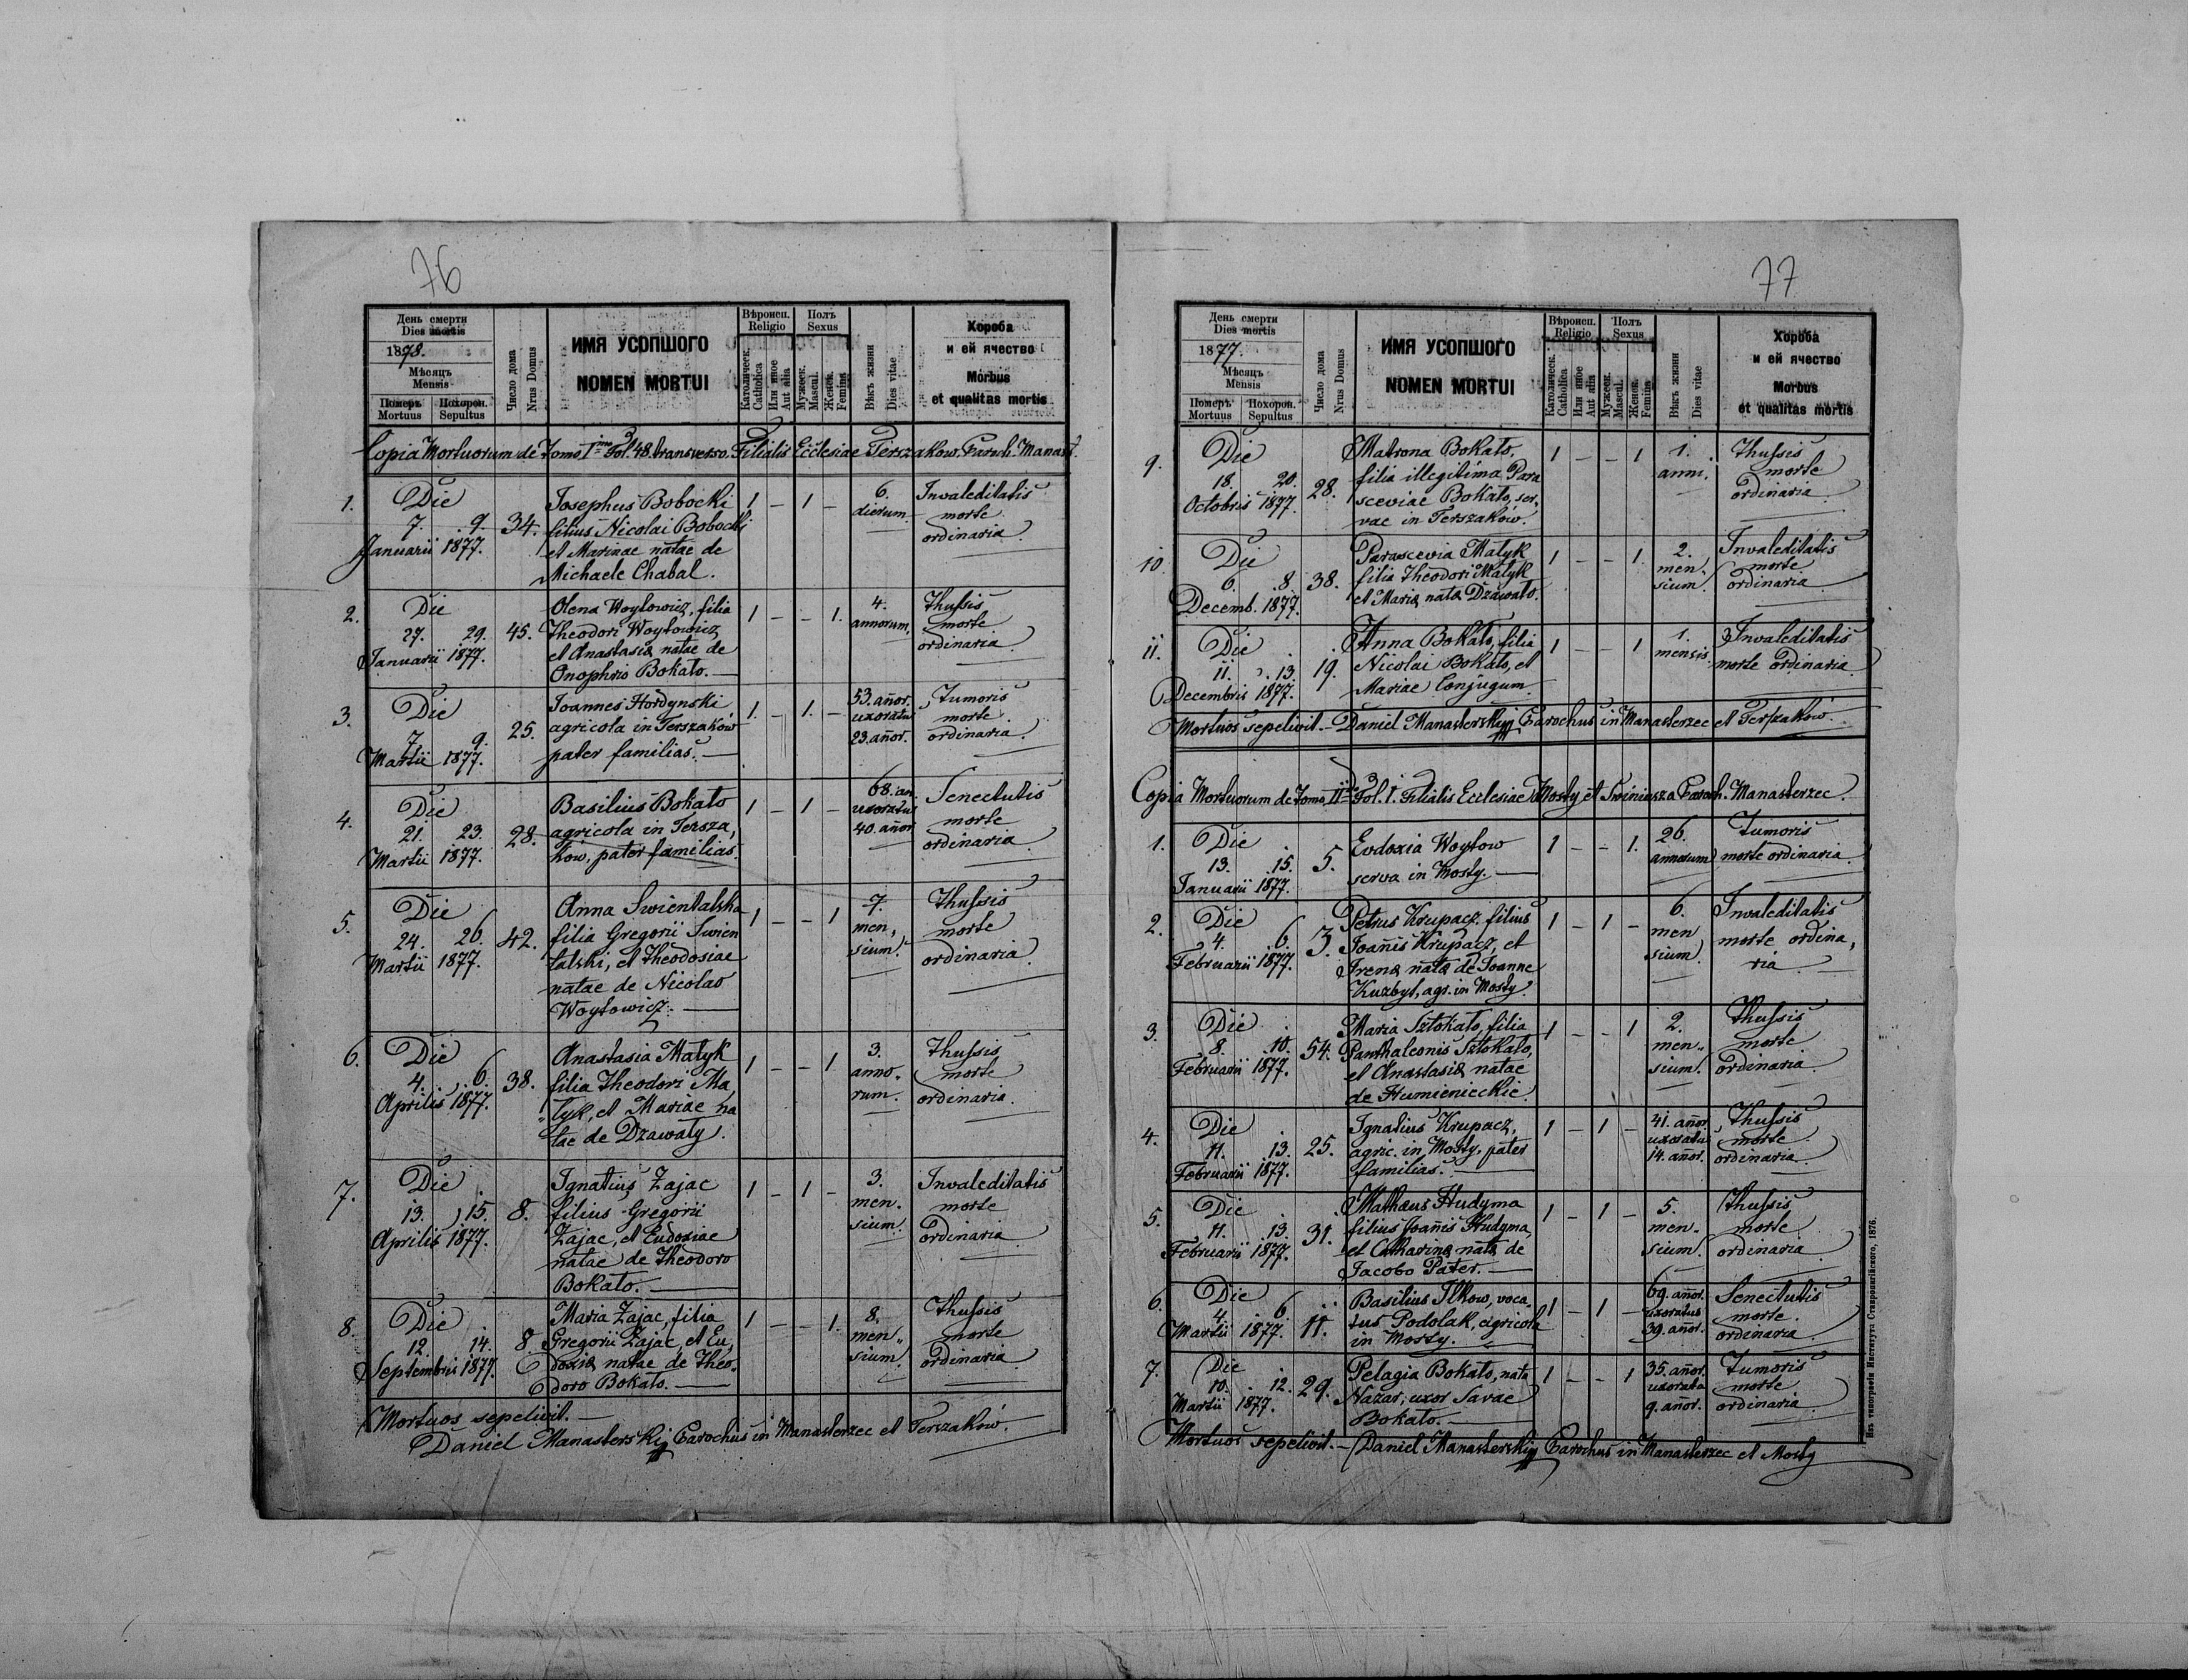 76
День смерти
Dies mortis
1878.
Мѣсяцъ
Mensis
Померъ
Mortuus
Похорон.
Sepultus
Число дома
Nrus Domus
ИМЯ УСОПШОГО
NOMEN MORTUI
Вѣроисп.
Religio
Католическ.
Catholica
Или иное
Aut alia
Полъ
Sexus
Мужеск.
Mascul.
Женск.
Femina
Вѣкъ жизни
Dies vitae
Хороба
и ей ячество
Morbus
et qualitas mortis
Copia Mortuorum de Tomo I Fol. 48. transverso. Filialis Ecclesiae Terszakow, Paroch. Manast.
1. Die 7. 9. Januarii 1877. 34. 1 – 1 – 6. dierum. Invaleditatis morte ordinaria.
Josephus Bobocki
filius Nicolai Bobocki
et Marinae natae de
Michaele Chabal.
2. Die 27. 29. Januarii 1877. 45. 1 – – 1. 4. annorum. Thussis morte ordinaria.
Olena Woytowicz, filia
Theodori Woytowicz
et Anastasiae natae de
Onophrio Bokało.
3. Die 7. 9. Martii 1877. 25. 1. – 1. – 53. añor. uxoratus 23. añor. Tumoris morte ordinaria.
Joannes Hordynski
agricola in Terszaków
pater familias.
4. Die 21. 23. Martii 1877. 28. 1 – 1 – 68. an. uxoratus 40. añor. Senectutis morte ordinaria.
Basilius Bokało
agricola in Tersza,
ków, pater familias.
5. Die 24. 26. Martii 1877. 42. 1 – – 1 7. men, sium. Thussis morte ordinaria.
Anna Swientalska
filia Gregorii Swien
talski, et Theodosiae
natae de Nicolao
Woytowicz.
6. Die 4. 6. Aprilis 1877. 38. 1 – – 1 3. anno, rum. Thussis morte ordinaria.
Anastasia Matyk
filia Theodori Ma,
tyk, et Mariae na
tae de Dzawały.
7. Die 13. 15. Aprilis 1877. 8. 1 – 1 – 3. men. sium. Invaleditatis morte ordinaria.
Ignatius Zajac
filius Gregorii
Zajac, et Eudosiae
natae de Theodoro
Bokało.
8. Die 12. 14. Septembrii 1877. 8. 1 – – 1. 8. men, sium. Thussis morte ordinaria.
Maria Zajac, filia
Gregorii Zajac, et Eu,
doxiae natae de Theo,
doro Bokało.
Mortuos sepelivit.
Daniel Manasterskij Parochus in Manasterzec et Terszaków.
77
День смерти
Dies mortis
1877.
Мѣсяцъ
Mensis
Померъ
Mortuus
Похорон.
Sepultus
Число дома
Nrus Domus
ИМЯ УСОПШОГО
NOMEN MORTUI
Вѣроисп.
Religio
Католическ.
Catholica
Или иное
Aut alia
Полъ
Sexus
Мужеск.
Mascul.
Женск.
Femina
Вѣкъ жизни
Dies vitae
Хороба
и ей ячество
Morbus
et qualitas mortis
9. Die 18. 20. Octobris 1877. 28. 1 – – 1 1. anni. Thussis morte ordinaria.
Matrona Bokało,
filia illegitima Para
sceviae Bokało, ser,
vae in Terszaków.
10. Die 6. 8. Decemb. 1877. 38. 1 – – 1. 2. men, sium. Invaleditatis morte ordinaria.
Parascevia Matyk
filia Theodori Matyk
et Mariae natae Dzawało.
11. Die 11. 13. Decembris 1877. 19. 1 – – 1 1. mensis. Invaleditatis morte ordinaria.
Anna Bokało, filia
Nicolai Bokało, et
Mariae Conjugum.
Mortuos sepelivit. – Daniel Manasterskij Parochus in Manasterzec et Terszaków.
Copia Mortuorum de Tomo II Fol. 1. Filialis Ecclesiae Mosty et Swiniusza Paroch. Manasterzec.
1. Die 13. 15. Januarii 1877. 5. 1 – – 1. 26. annorum Tumoris morte ordinaria.
Eudoxia Woytow
serva in Mosty.
2. Die 4. 6. Februarii 1877. 3. 1 – 1 – 6. men sium. Invaleditatis morte ordina, ria
Petrus Krupacz filius
Joañis Krupacz, et
Irenae natae de Joanne
Kuzbyt, agr. in Mosty.
3. Die 8. 10. Februarii 1877. 54. 1 – – 1 2. men, sium. Thussis morte ordinaria.
Maria Sztokało, filia
Panthaleonis Sztokało,
et Anastasiae natae
de Humienieckie.
4. Die 11. 13. Februarii 1877. 25. 1 – 1 – 41. añor. uxoratus 14. añor. Thussis morte ordinaria.
Ignatius Krupacz,
agric. in Mosty, pater
familias.
5. Die 11. 13. Februarii 1877. 31. 1 – 1 – 5. men. sium. Thussis morte ordinaria.
Mathaus Hudyma
filius Joañis Hudyma,
et Catharinae natae de
Jacobo Pater.
6. Die 4. 6. Martii 1877. 11. 1 – 1 – 69. añor. uxoratus 39. añor. Senectutis morte ordinaria.
Basilius Ilkow, voca,
tus Podolak, agricola
in Mosty.
7. Die 10. 12. Martii 1877. 29. 1 – – 1 35. añor. uxorata 9. añor. Tumoris morte ordinaria.
Pelagia Bokało, nata
Nazar, uxor Savae
Bokało.
Mortuos sepelivit. – Daniel Manasterskij Parochus in Manasterzec et Mosty
Изъ типографіи Института Ставропигійского, 1876.